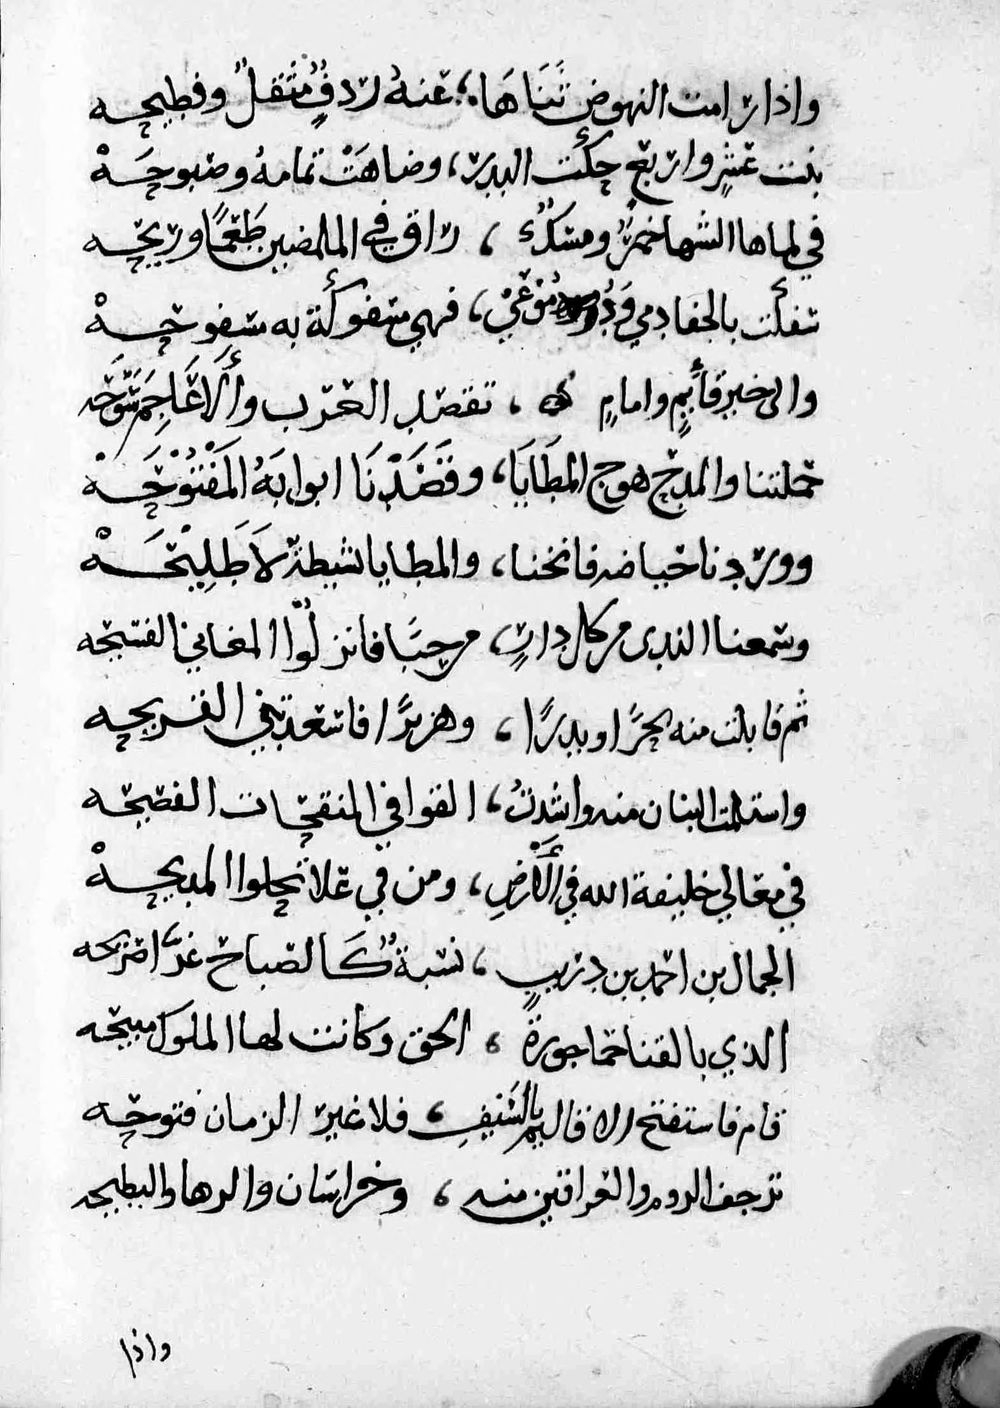 واذا رامت النهوض ثناها، عنهُ رِدفٌ مُثقلٌ وفطيحه
بنت عشرٍ واربعٍ حكَت البدر، وضاهَتْ تمامهُ وصبوحَهْ
في لماها الشها خمرٌ ومسكٌ، راق في المالضين طَعْمًا وريحه
سفكَت بالجفا دمي ودموعي، فهي مسفوكة به مسفوحهْ
والى خير قأيمٍ وامامٍ، تقصد العرب والاعاجم سَوحَه
حملتنا والمدح هوج المطايَا، وقصَدْنَا ابوابَهُ المَفْتُوحَهْ
ووردنا حياضه فانخنا، والمطايا نشيطة لا طَلِيْحَهْ
وسمعنا الندى من كل دارٍ، مرحبًا فانزلُوا المغاني الفسيحه
ثم قابلت منه بحرًا وبدرًا، وهزبرًا فاسعدتني القريحه
واستلمت البنان منه وانشدتُ، القوافي المنقحات الفصيحه
في معالي خليفة الله في الأرضِ، ومن في علاه تحلوا المديحهْ
الجمال بن احمد بن دريبٍ، نسبةٌ كالصباح غرّا صريحه
الذي بالقنا حما حوزة، الحق وكانت لها الملوك مبيحه
قام فاستفتح الاقاليم بالسَيفِ، فلا غير الزمان فتوحه
ترجف الروم والعراقين منه، وخراسان والرها والبطيحه
واذا